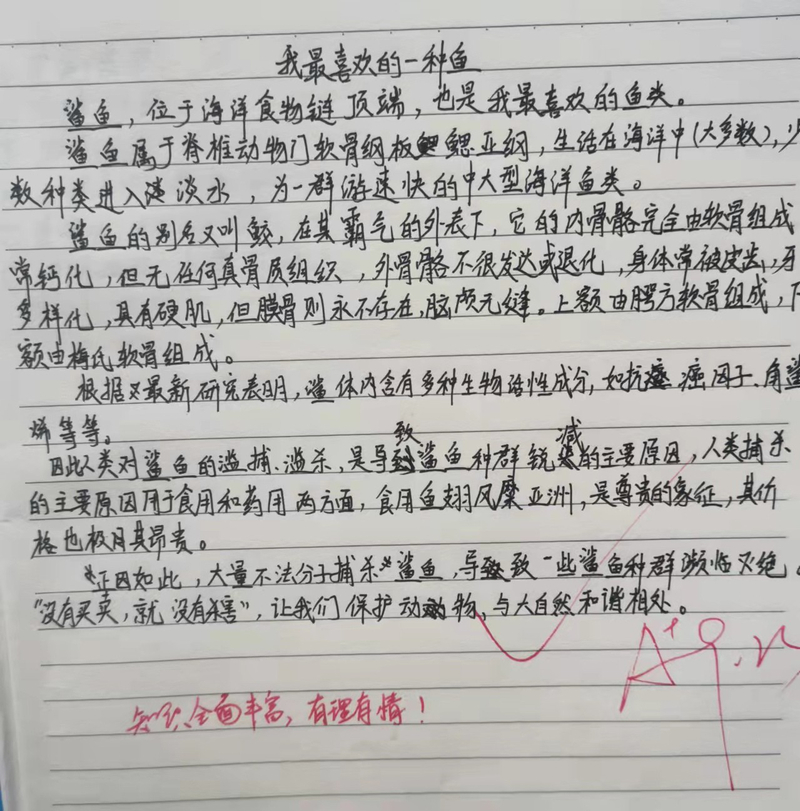 我最喜欢的一种鱼
鲨鱼，位于海洋食物链顶端，也是我最喜欢的鱼类。
鲨鱼属于脊椎动物门软骨纲板鳃亚纲，生活在海洋中(大多数)，少
数种类进入淡水，为一群游速快的中大型海洋鱼类。
鲨鱼的别名又叫鲛，在其霸气的外表下，它的内骨骼完全由软骨组成
常钙化，但无任何真骨质组织，外骨骼不很发达或退化，身体常被皮齿，牙
多样化，具有硬肌，但膜骨则永不存在，脑颅无缝。上额由腭方软骨组成，下
额由梅氏软骨组成。
根据最新研究表明，鲨体内含有多种生物活性成分，如抗癌因子、角鲨
烯等等。
因此人类对鲨鱼的滥捕、滥杀，是导致鲨鱼种群锐减的主要原因，人类捕杀
的主要原因用于食用和药用两方面，食用鱼翅风糜亚洲，是尊贵的象征，其价
格也极其昂贵。
正因如此，大量不法分子捕杀鲨鱼，导致一些鲨鱼种群濒临灭绝。
"没有买卖，就没有杀害"，让我们保护动物，与大自然和谐相处。
A+
知识全面丰富，有理有情！